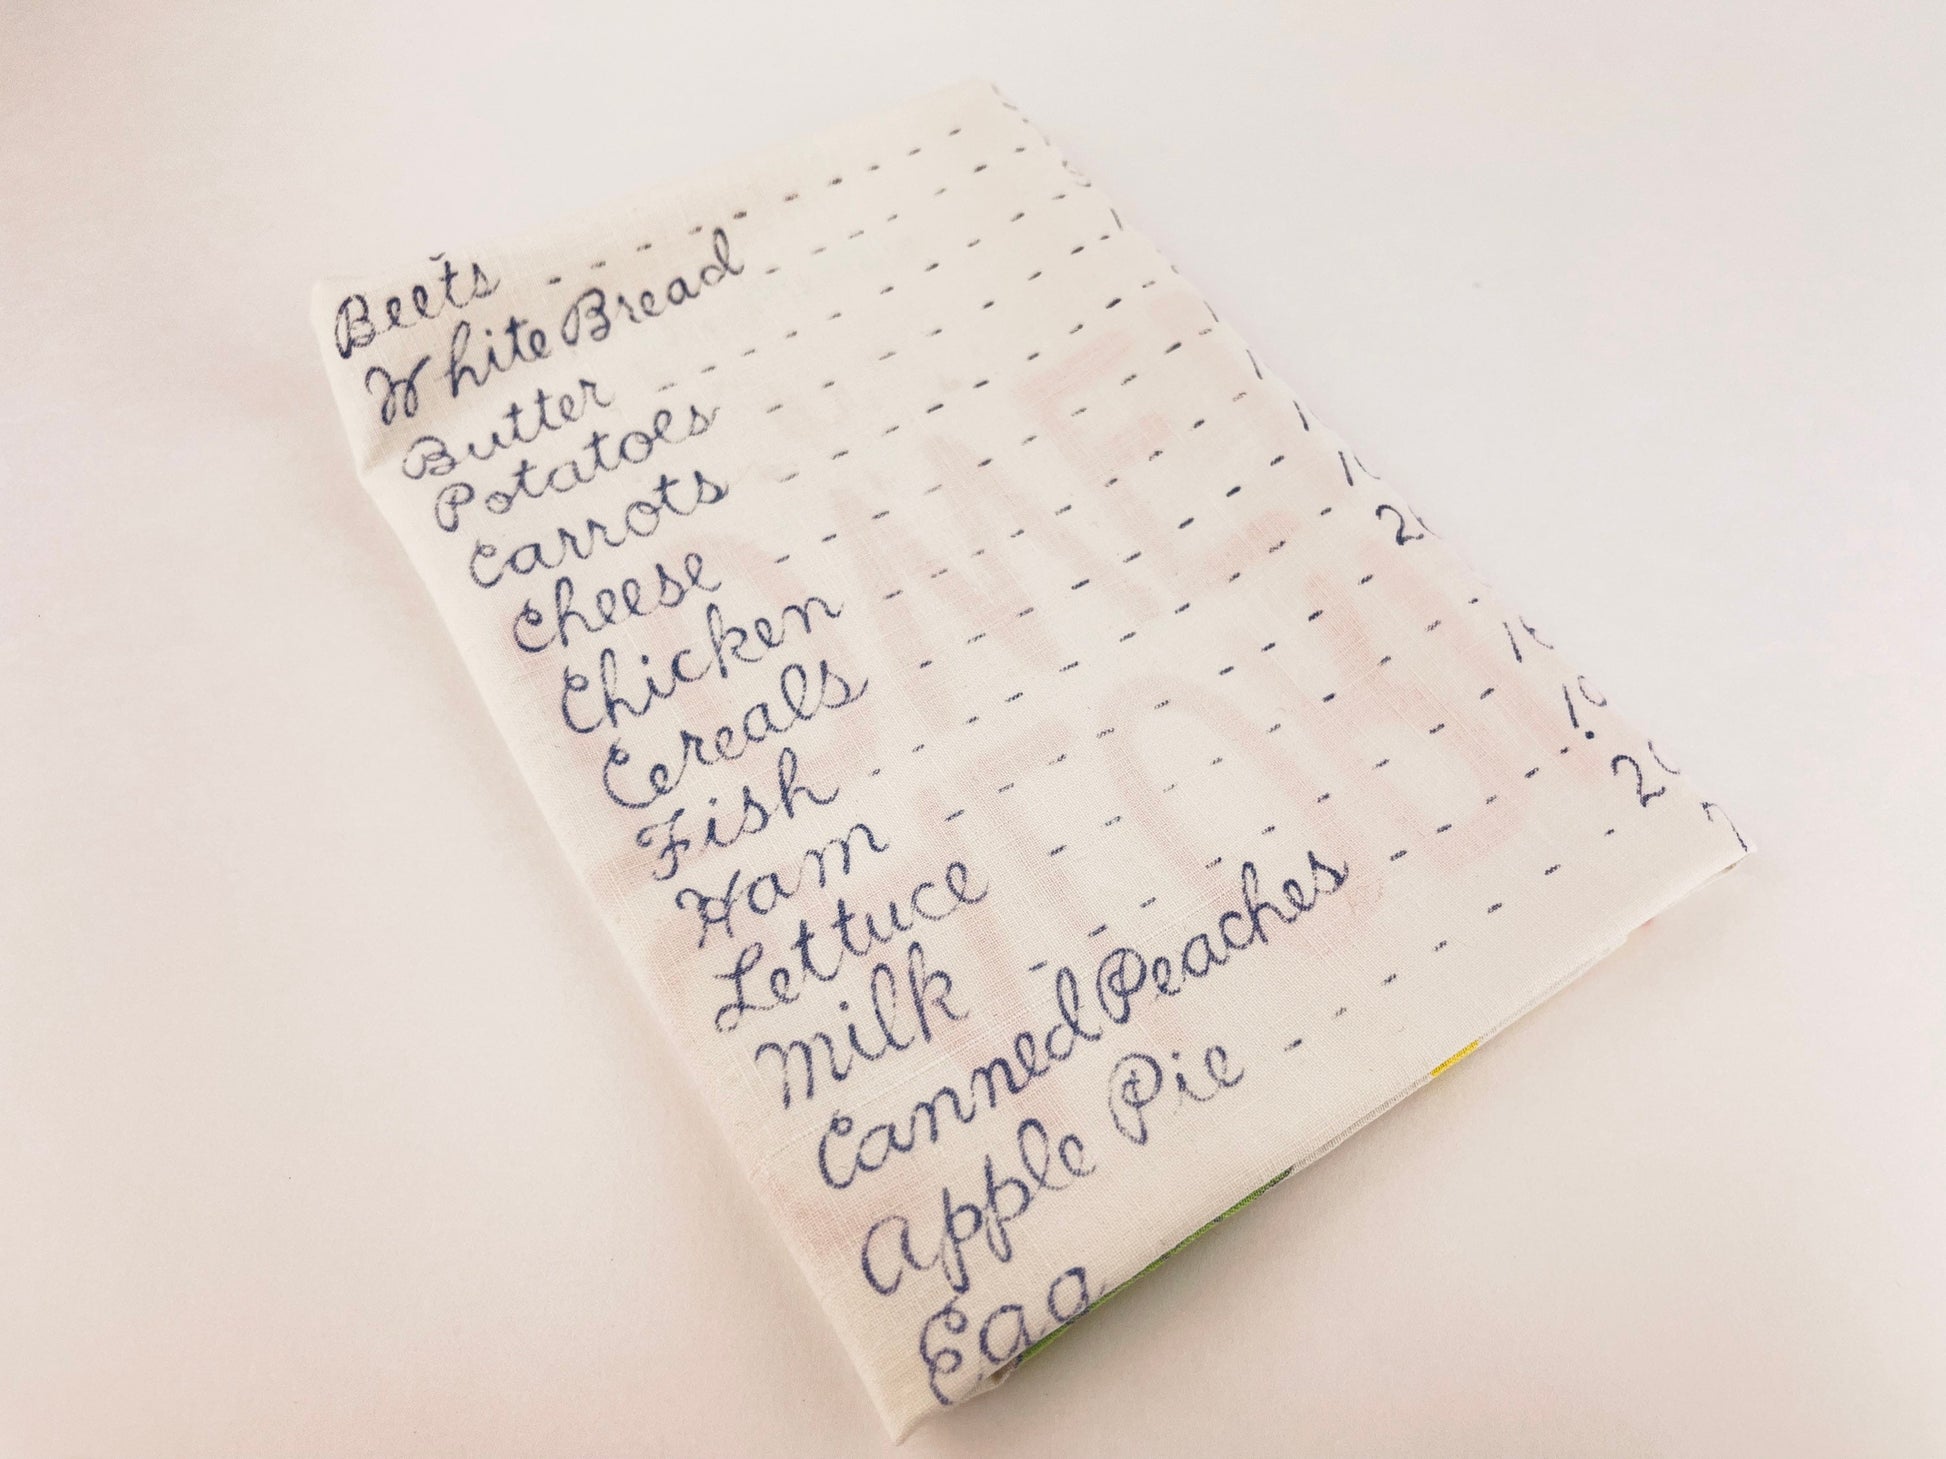 Beets
White Bread
Butter
Potatoes
Carrots
Cheese
Chicken
Cereals
Fish
Ham
Lettuce
Milk
Canned Peaches
Apple Pie